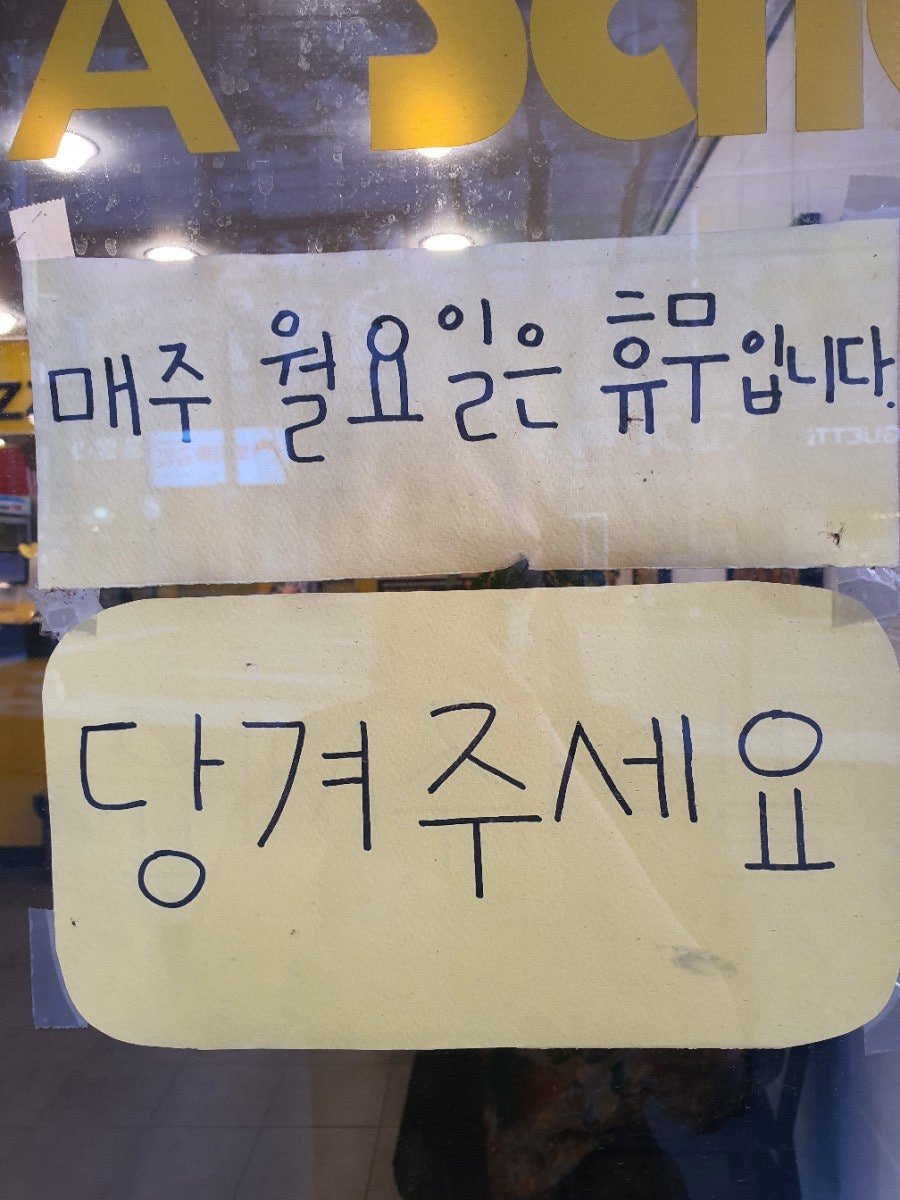 매주 월요일은 휴무입니다.
당겨주세요